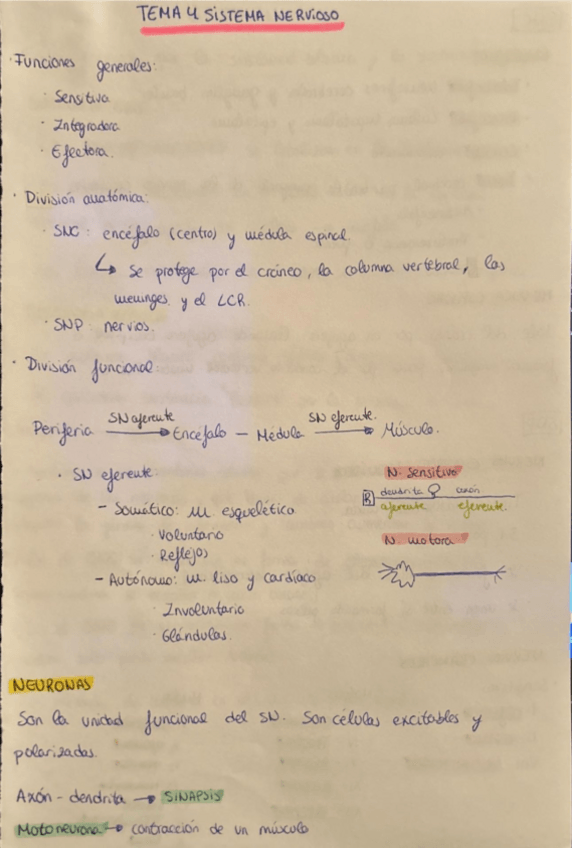 TEMA 4 SISTEMA NERVIOSO
· Funciones generales:
· Sensitiva
· Integradora
· Efectora.
· División anatómica:
· SNC: encéfalo (centro) y médula espinal.
↳ Se protege por el cráneo, la columna vertebral, las
meninges y el LCR.
· SNP nervios.
· División funcional:
Periferia SN aferente → Encéfalo - Médula SN eferente. → Músculo.
· SN eferente
- Somático: m. esquelético
· Voluntario
· Reflejos
- Autónomo: m. liso y cardíaco
· Involuntario
· Glándulas.
N. Sensitivo
R dendrita axón
aferente eferente.
N. motora
NEURONAS
Son la unidad funcional del SN. Son células excitables y
polarizadas.
Axón - dendrita → SINAPSIS
Motoneurona → contracción de un músculo